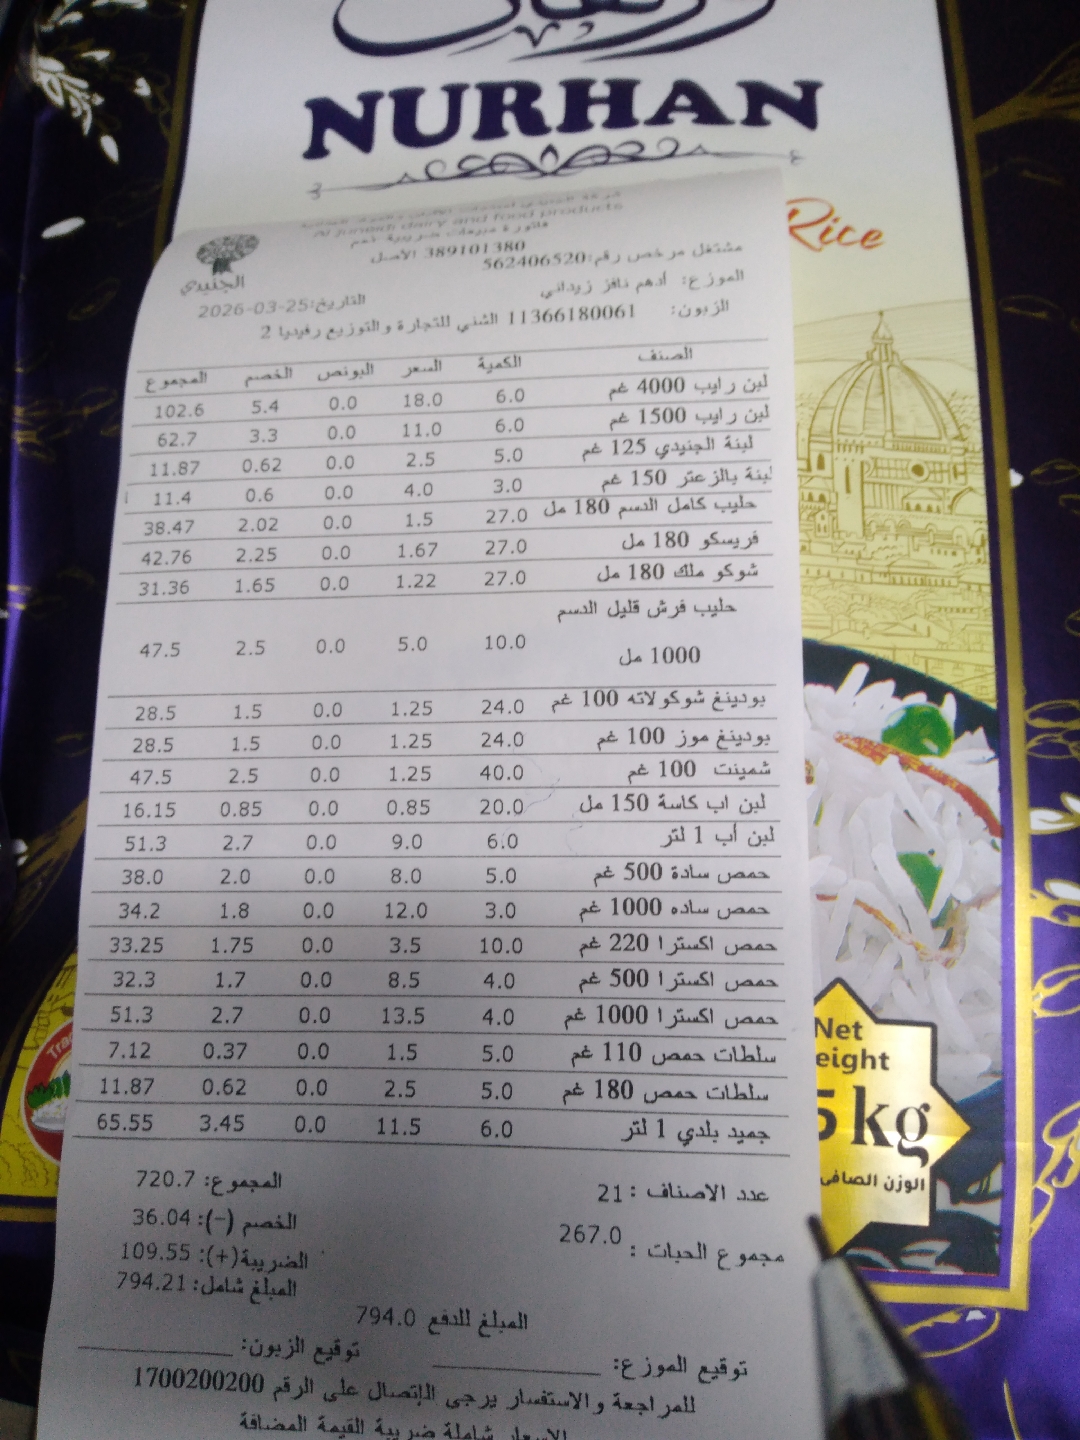 NURHAN
Rice
Al juneidi dairy and food products
فاتورة مبيعات ضريبية رقم
389101380 الأصل
مشتغل مرخص رقم:562406520
الجنيدي
الموزع: أدهم نافز زيداني
التاريخ:2026-03-25
الزبون: 11366180061 الشني للتجارة والتوزيع رفيديا 2
الصنف الكمية السعر البونص الخصم المجموع
لبن رايب 4000 غم 6.0 18.0 0.0 5.4 102.6
لبن رايب 1500 غم 6.0 11.0 0.0 3.3 62.7
لبنة الجنيدي 125 غم 5.0 2.5 0.0 0.62 11.87
لبنة بالزعتر 150 غم 3.0 4.0 0.0 0.6 11.4
حليب كامل الدسم 180 مل 27.0 1.5 0.0 2.02 38.47
فريسكو 180 مل 27.0 1.67 0.0 2.25 42.76
شوكو ملك 180 مل 27.0 1.22 0.0 1.65 31.36
حليب فرش قليل الدسم
1000 مل 10.0 5.0 0.0 2.5 47.5
بودينغ شوكولاته 100 غم 24.0 1.25 0.0 1.5 28.5
بودينغ موز 100 غم 24.0 1.25 0.0 1.5 28.5
شمينت 100 غم 40.0 1.25 0.0 2.5 47.5
لبن اب كاسة 150 مل 20.0 0.85 0.0 0.85 16.15
لبن أب 1 لتر 6.0 9.0 0.0 2.7 51.3
حمص سادة 500 غم 5.0 8.0 0.0 2.0 38.0
حمص ساده 1000 غم 3.0 12.0 0.0 1.8 34.2
حمص اكسترا 220 غم 10.0 3.5 0.0 1.75 33.25
حمص اكسترا 500 غم 4.0 8.5 0.0 1.7 32.3
حمص اكسترا 1000 غم 4.0 13.5 0.0 2.7 51.3
سلطات حمص 110 غم 5.0 1.5 0.0 0.37 7.12
سلطات حمص 180 غم 5.0 2.5 0.0 0.62 11.87
جميد بلدي 1 لتر 6.0 11.5 0.0 3.45 65.55
عدد الاصناف : 21
المجموع: 720.7
مجموع الحبات : 267.0
الخصم (-): 36.04
الضريبة(+): 109.55
المبلغ شامل: 794.21
المبلغ للدفع 794.0
توقيع الموزع:
توقيع الزبون:
للمراجعة والاستفسار يرجى الإتصال على الرقم 1700200200
الاسعار شاملة ضريبة القيمة المضافة
Net
eight
5 kg
الوزن الصافي